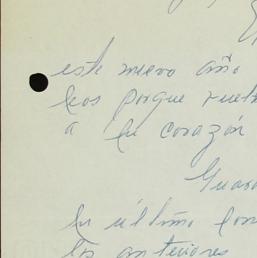 este nuevo año
porque vuelv
a tu corazón
Guard
tu último
los anteriores